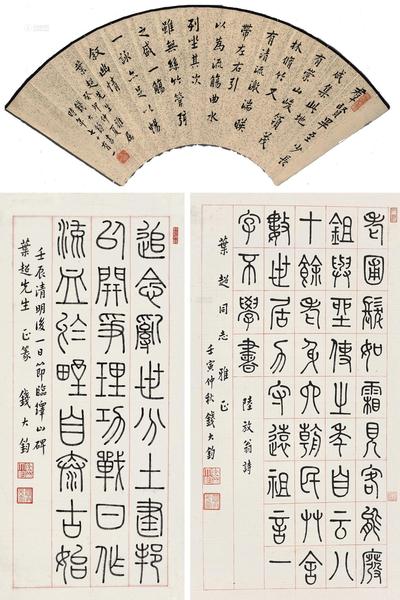 賢畢至少長
咸集此地
有崇山峻領茂
林脩竹又
有清流激湍暎
帶左右引
以為流觴曲水
列坐其次
雖無絲竹管弦
之盛一觴
一詠亦足以暢
敘幽情
追念亂世分土建邦
以開爭理功戰日作
流血於野自泰古始
壬辰清明後一日節臨繹山碑
葉超先生 正篆 錢大鈞
老圃鬢如霜見客能廢
鉏與坐自云八
十餘老朝民艸舍
數世居方守遠祖言一
字不學書
陸放翁詩
葉超同志雅正
壬寅仲秋錢大鈞